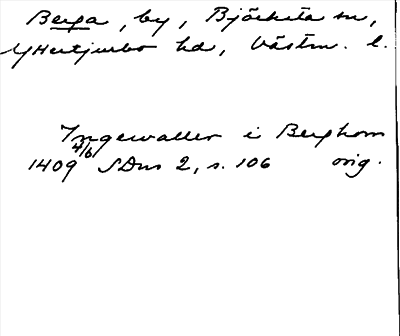 Berga, by, Björksta sn,
Yttertjurbo hd, Västm. l.
Ingewaller i Berghom
4/6
1409 SDns 2, s. 106 orig.